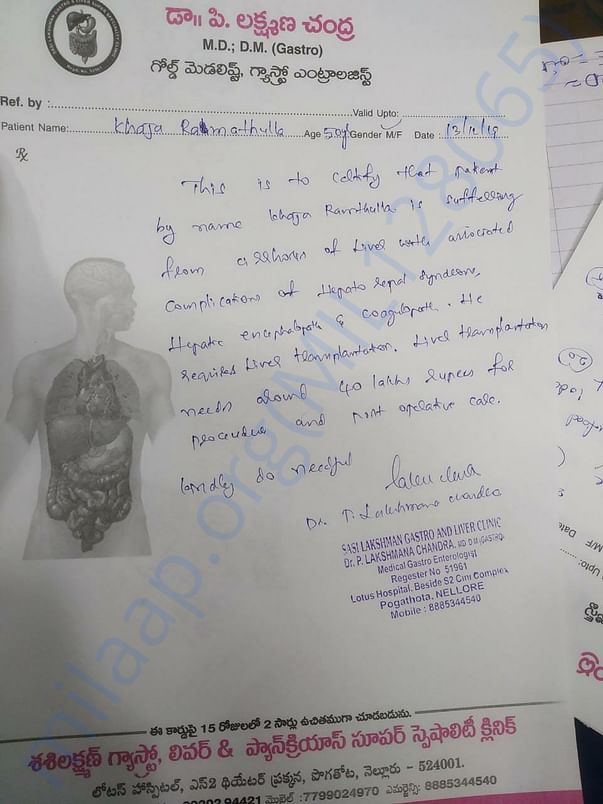 డా॥ పి. లక్ష్మణ చంద్ర
M.D.; D.M. (Gastro)
గోల్డ్ మెడలిస్ట్, గ్యాస్ట్రో ఎంట్రాలజిస్ట్
Ref. by : Valid Upto:
Patient Name: Khaja Rahmathulla Age 50y Gender M/F Date : 13/11/18
This is to certify that patient
by name Khaja Ramthulla is suffering
from cirrhosis of Liver with associated
complications of Hepato renal syndrome,
Hepatic encephalopath & coagulopath. He
requires Liver transplantation. Liver transplantation
needs around 40 lakhs rupees for
procedure and post operative care.
kindly do needful
Dr. P. Lakshmana chandra
SASI LAKSHMAN GASTRO AND LIVER CLINIC
Dr. P. LAKSHMANA CHANDRA, MD. D.M (GASTRO)
Medical Gastro Enterologist
Regester No 51961
Lotus Hospital, Beside S2 Cini Complex
Pogathota, NELLORE
Mobile : 8885344540
milaap.org(MIL128065)
ఈ కార్డుపై 15 రోజులలో 2 సార్లు ఉచితముగా చూడబడును.
శశిలక్ష్మణ్ గ్యాస్ట్రో, లివర్ & ప్యాన్‌క్రియాస్ సూపర్ స్పెషాలిటీ క్లినిక్
లోటస్ హాస్పిటల్, ఎస్2 థియేటర్ ప్రక్కన, పొగతోట, నెల్లూరు - 524001.
94421 మొబైల్ :7799024970 ఎమర్జెన్సి: 8885344540